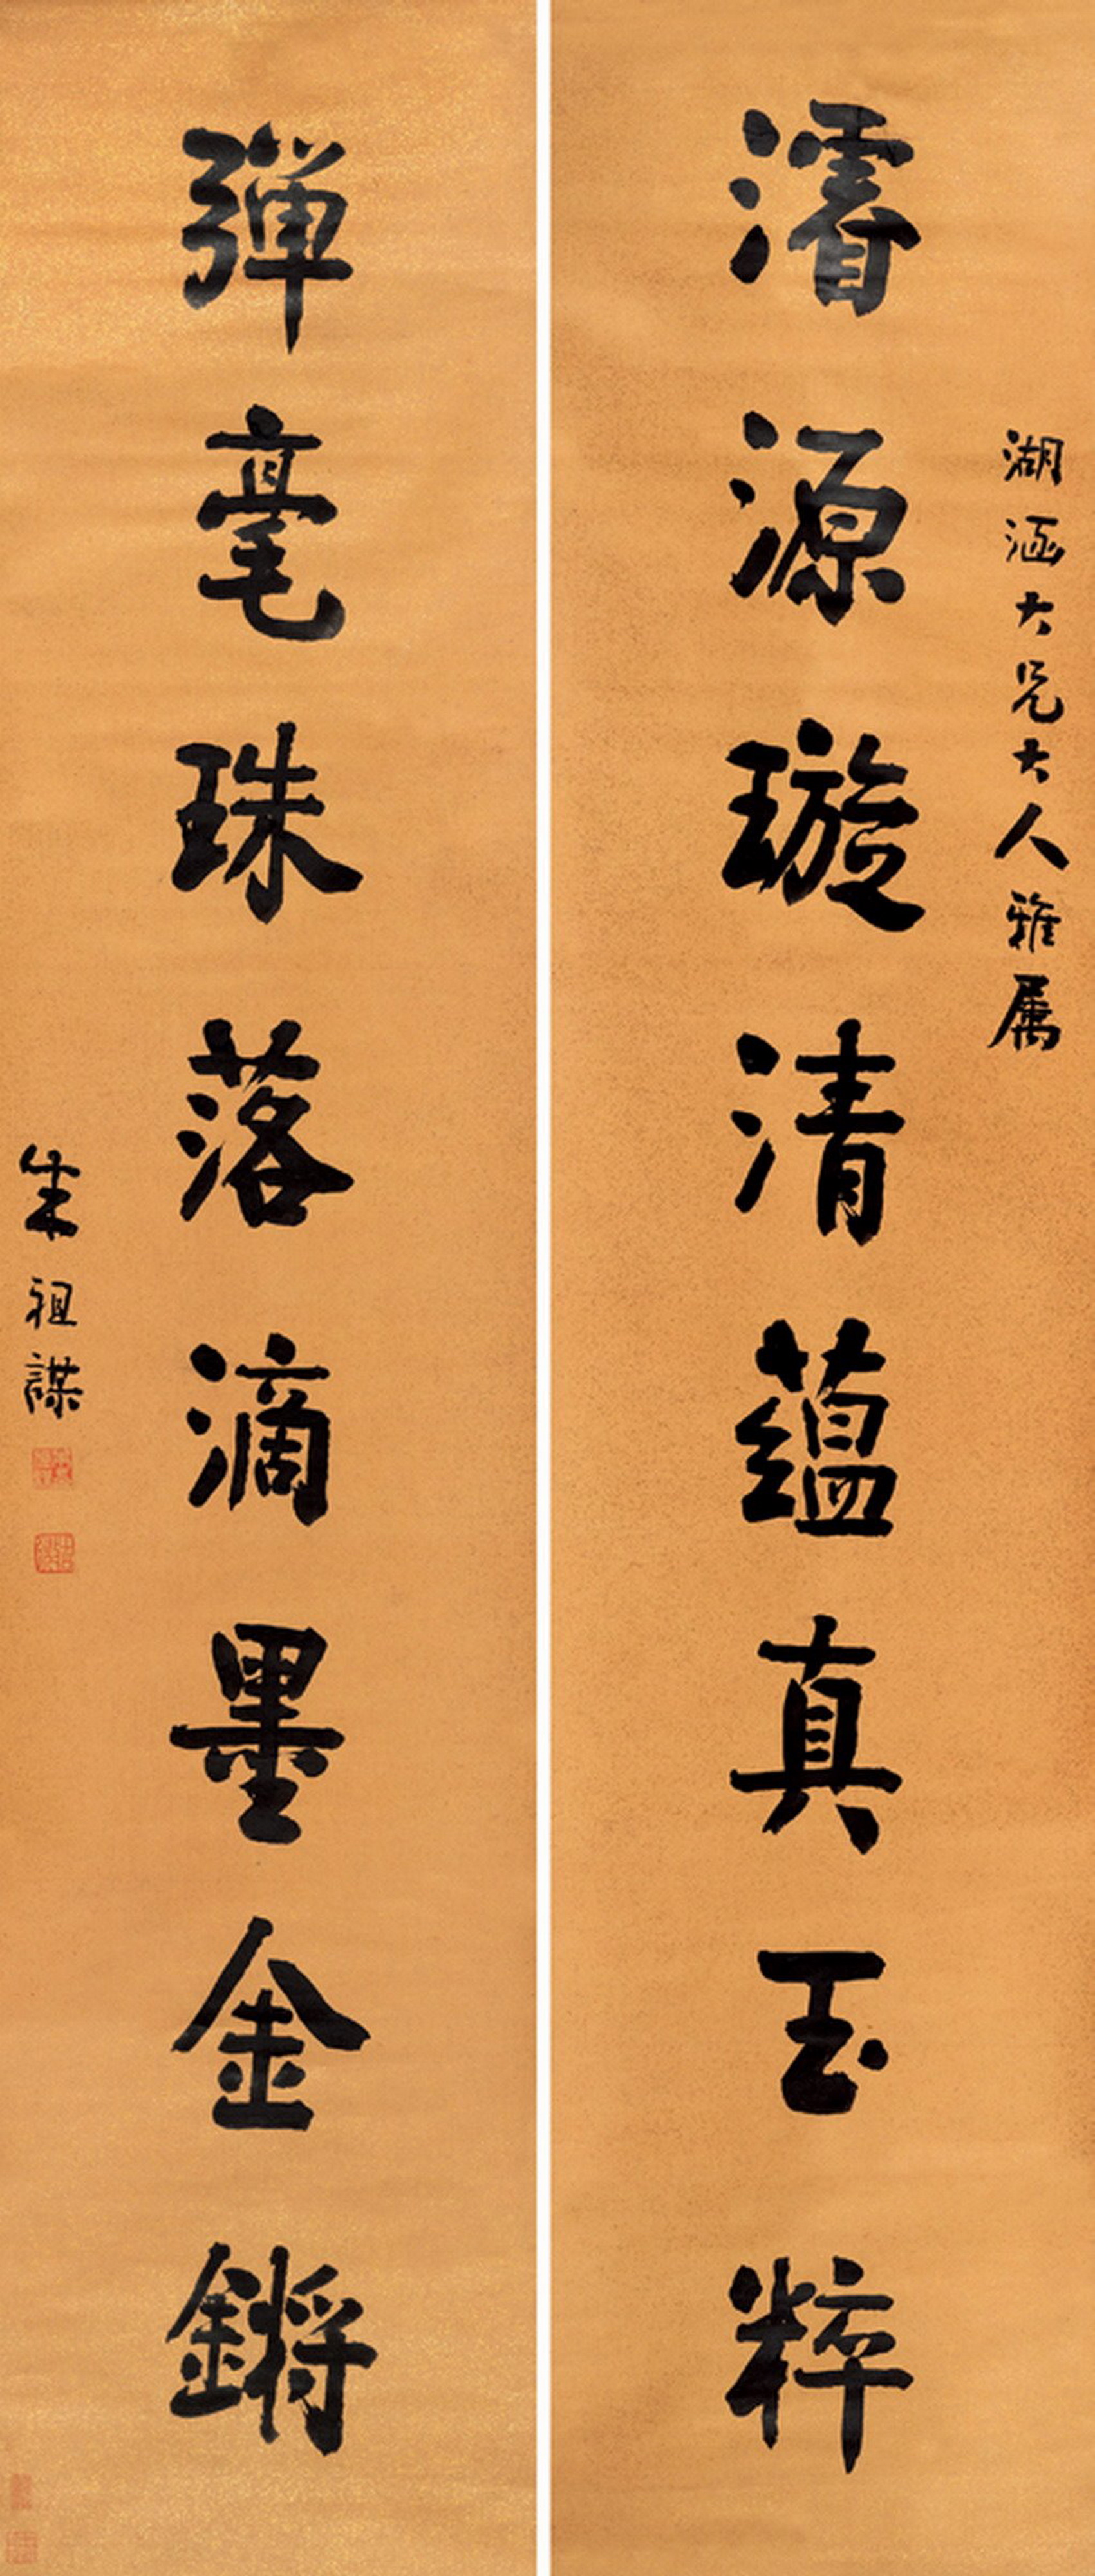 湖涵大兄大人雅属
濬源璇清蕴真玉粹
弹毫珠落滴墨金鏘
朱祖謀